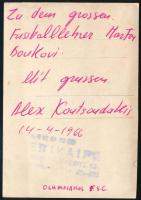 Zu dem grossen
Fussballlehrer Marton
Boukovi.
Mit grussen
Alex Koutsoudakis
14-4-1966
OLYMPIAKOS F.S.C.